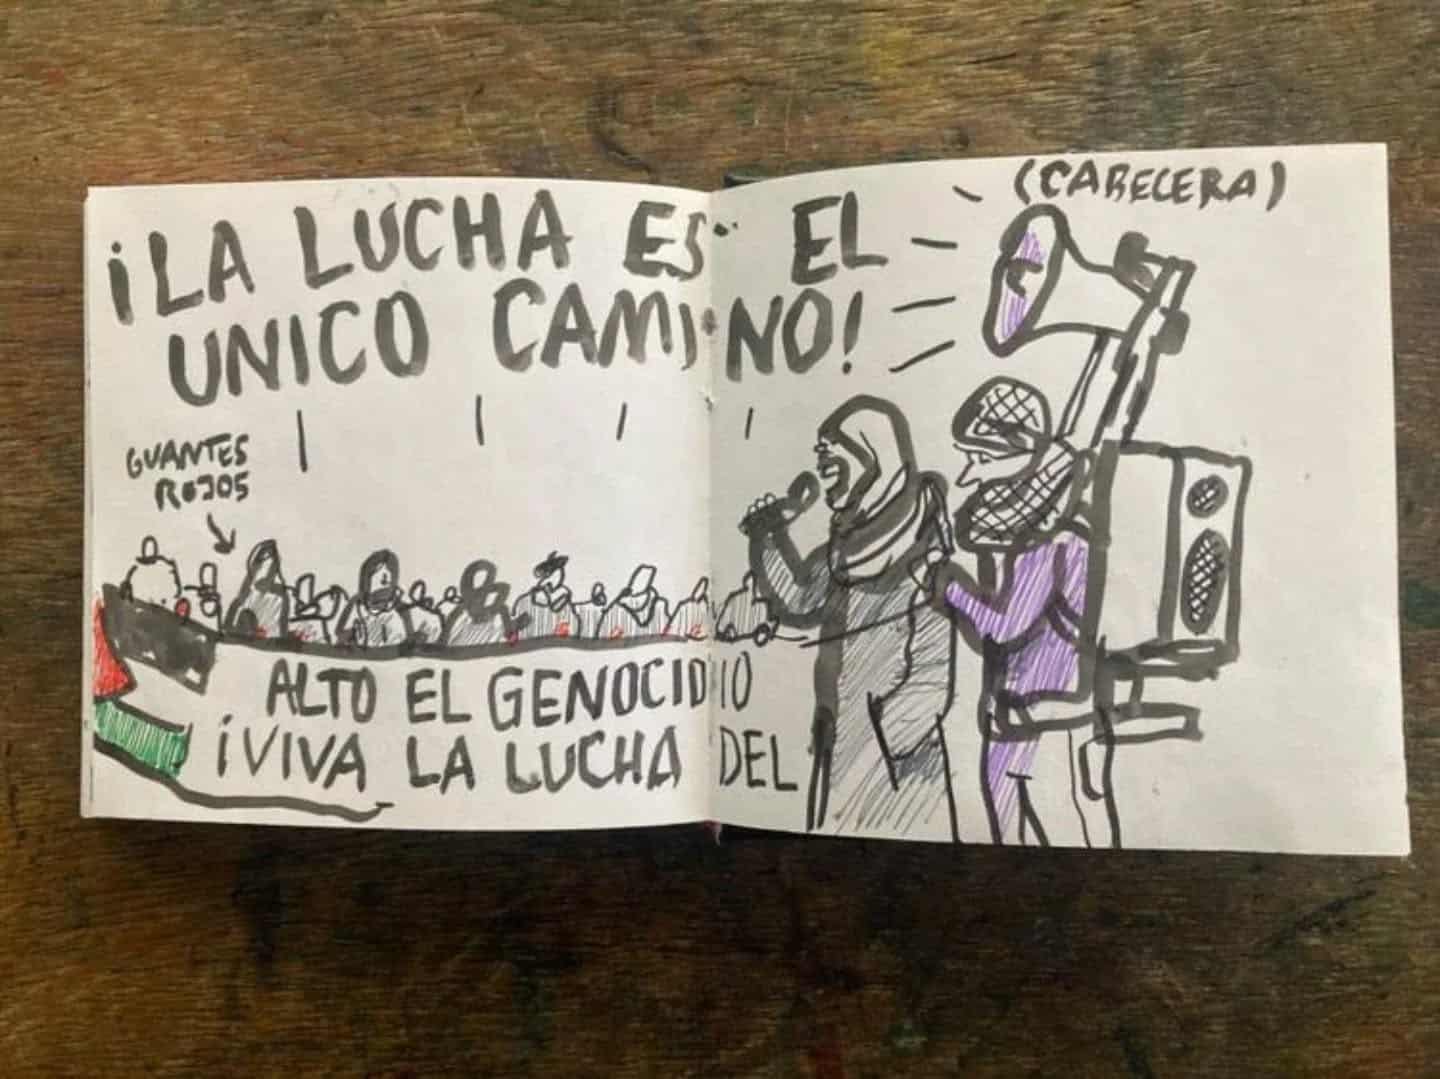 ¡LA LUCHA ES EL
UNICO CAMINO!
(CABECERA)
GUANTES
ROJOS
ALTO EL GENOCIDIO
¡VIVA LA LUCHA DEL